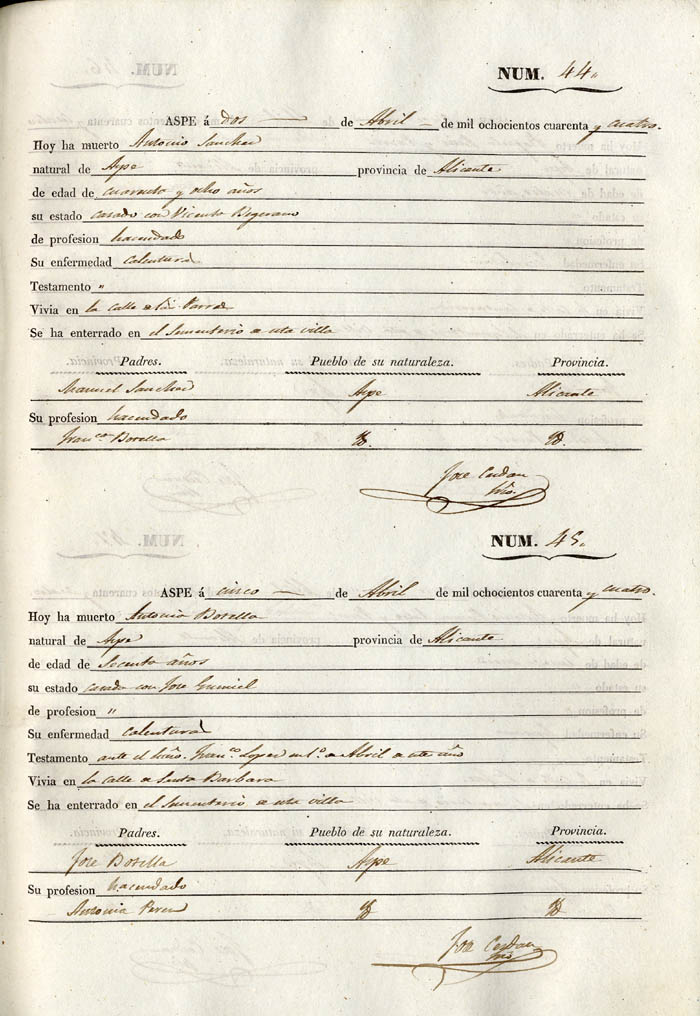 NUM. 44.
ASPE á dos de Abril de mil ochocientos cuarenta y cuatro.
Hoy ha muerto Antonio Sanchez
natural de Aspe provincia de Alicante
de edad de cuarenta y ocho años
su estado casado con Vicenta
de profesion hacendado
Su enfermedad calentura
Testamento "
Vivia en la calle de la Parra
Se ha enterrado en el Sementerio de esta villa
Padres. Pueblo de su naturaleza. Provincia.
Manuel Sanchez Aspe Alicante
Su profesion hacendado
Fran.ca Botella
Jose Cerdan
NUM. 45.
ASPE á cinco de Abril de mil ochocientos cuarenta y cuatro.
Hoy ha muerto Antonia Botella
natural de Aspe provincia de Alicante
de edad de Secenta años
su estado casada con Jose
de profesion "
Su enfermedad calentura
Testamento ante el Fran.co Lopez en 1.o de Abril de este año
Vivia en la calle de Santa Barbara
Se ha enterrado en el Sementerio de esta villa
Padres. Pueblo de su naturaleza. Provincia.
Jose Botella Aspe Alicante
Su profesion hacendado
Antonia Perez
Jose Cerdan